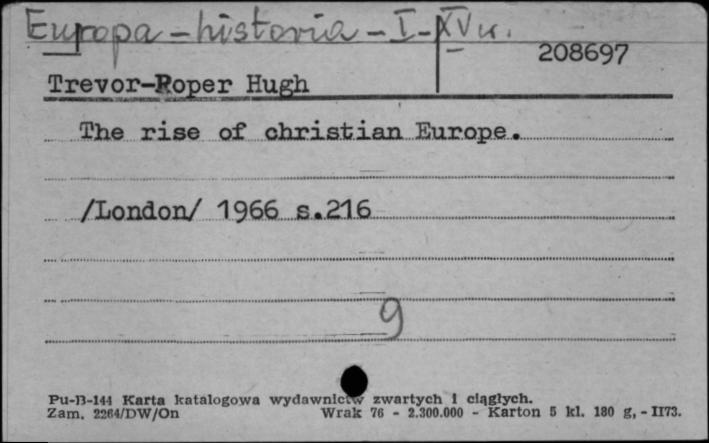 Europa – historia – I – XV w.
208697
Trevor-Roper Hugh
The rise of christian Europe.
/London/ 1966 s.216
9
Pu-B-144 Karta katalogowa wydawnictw zwartych i ciągłych.
Zam. 2264/DW/On Wrak 76 - 2.300.000 - Karton 5 kl. 180 g, - II73.